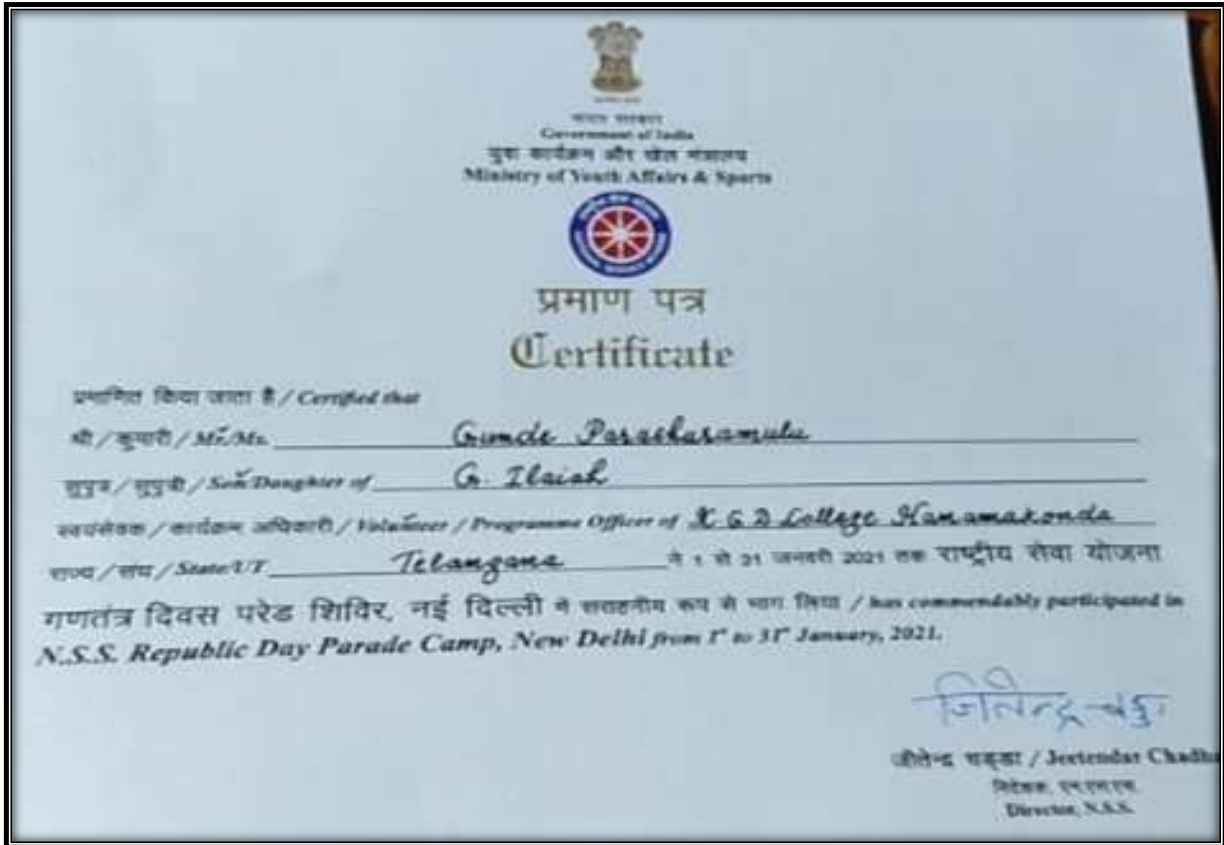 भारत सरकार
Government of India
युवा कार्यक्रम और खेल मंत्रालय
Ministry of Youth Affairs & Sports
प्रमाण पत्र
Certificate
प्रमाणित किया जाता है / Certified that
श्री / कुमारी / Mr./Ms. Gunde Parasharamulu
सुपुत्र / सुपुत्री / Son/Daughter of G. Ilaiah
स्वयंसेवक / कार्यक्रम अधिकारी / Volunteer / Programme Officer of K G D College Hanamakonda
राज्य / संघ / State/UT Telangana ने 1 से 31 जनवरी 2021 तक राष्ट्रीय सेवा योजना
गणतंत्र दिवस परेड शिविर, नई दिल्ली में सराहनीय रूप से भाग लिया / has commendably participated in
N.S.S. Republic Day Parade Camp, New Delhi from 1st to 31st January, 2021.
जीतेन्द्र चड्ढा / Jeetendar Chadha
निदेशक, एन.एस.एस.
Director, N.S.S.